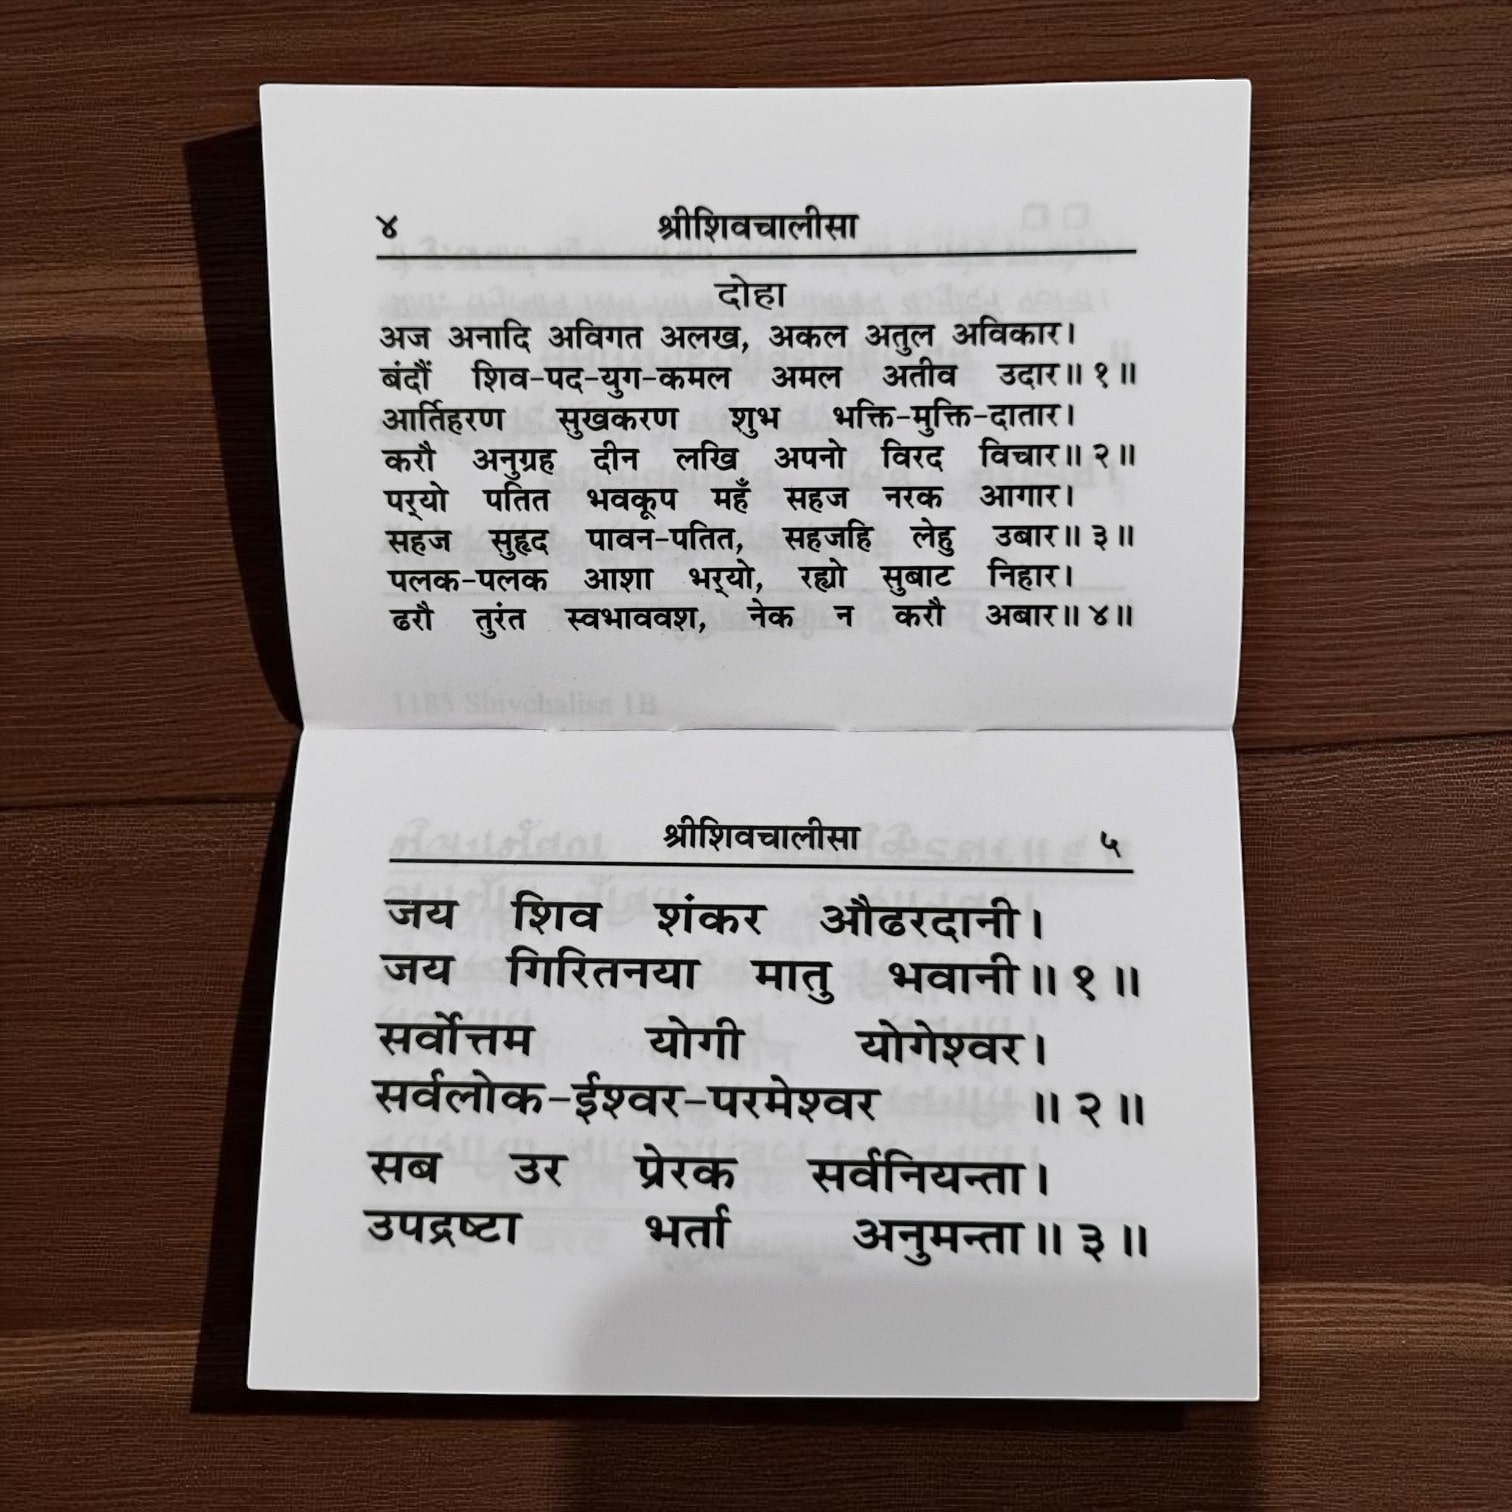 ४ श्रीशिवचालीसा
दोहा
अज अनादि अविगत अलख, अकल अतुल अविकार।
बंदौं शिव-पद-युग-कमल अमल अतीव उदार॥ १ ॥
आर्तिहरण सुखकरण शुभ भक्ति-मुक्ति-दातार।
करौ अनुग्रह दीन लखि अपनो विरद विचार॥ २ ॥
पर्‍यो पतित भवकूप महँ सहज नरक आगार।
सहज सुहृद पावन-पतित, सहजहि लेहु उबार॥ ३ ॥
पलक-पलक आशा भर्‍यो, रह्यो सुबाट निहार।
ढरौ तुरंत स्वभाववश, नेक न करौ अबार॥ ४ ॥
1185 Shivchalisa 1B
श्रीशिवचालीसा ५
जय शिव शंकर औढरदानी।
जय गिरितनया मातु भवानी॥ १ ॥
सर्वोत्तम योगी योगेश्वर।
सर्वलोक-ईश्वर-परमेश्वर ॥ २ ॥
सब उर प्रेरक सर्वनियन्ता।
उपद्रष्टा भर्ता अनुमन्ता॥ ३ ॥